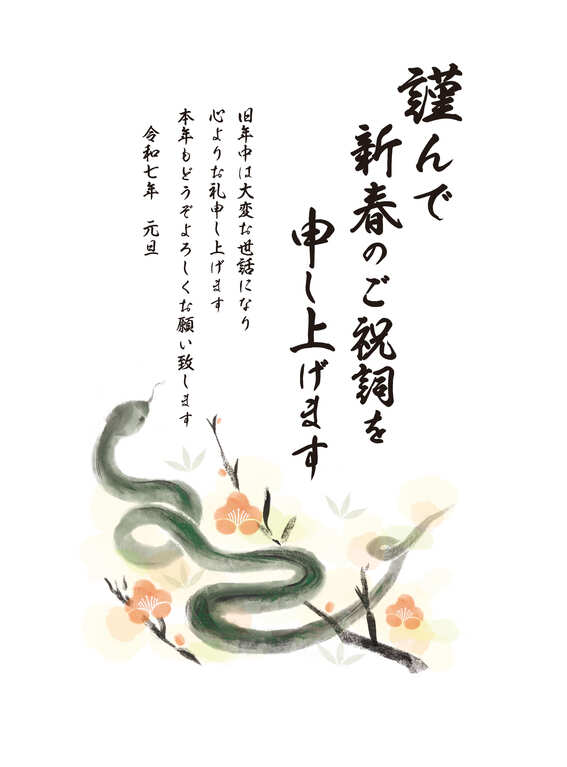 謹んで
新春のご祝詞を
申し上げます
旧年中は大変お世話になり
心よりお礼申し上げます
本年もどうぞよろしくお願い致します
令和七年　元旦